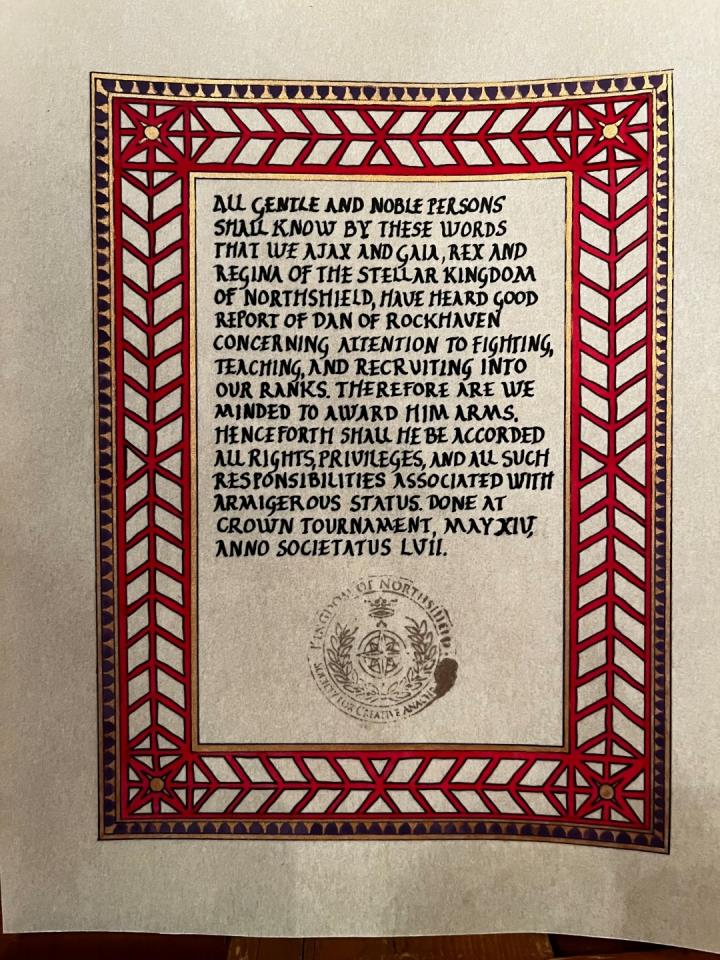 ALL GENTLE AND NOBLE PERSONS
SHALL KNOW BY THESE WORDS
THAT WE AJAX AND GAIA, REX AND
REGINA OF THE STELLAR KINGDOM
OF NORTHSHIELD, HAVE HEARD GOOD
REPORT OF DAN OF ROCKHAVEN
CONCERNING ATTENTION TO FIGHTING,
TEACHING, AND RECRUITING INTO
OUR RANKS. THEREFORE ARE WE
MINDED TO AWARD HIM ARMS.
HENCEFORTH SHALL HE BE ACCORDED
ALL RIGHTS, PRIVILEGES, AND ALL SUCH
RESPONSIBILITIES ASSOCIATED WITH
ARMIGEROUS STATUS. DONE AT
CROWN TOURNAMENT, MAY XIV,
ANNO SOCIETATUS LVII.
KINGDOM OF NORTHSHIELD
SOCIETY FOR CREATIVE